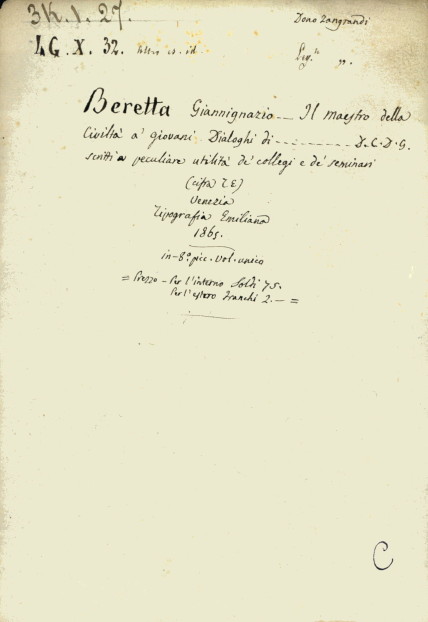 3K.1.27.
Dono Zangrandi
4G.X.32.
Leg.
Beretta Giannignazio — Il maestro della
Civiltà a' giovani. Dialoghi di ---------- D.C.D.G.
scritti a peculiare utilità de' collegi e de' seminari
(cifra T E)
Venezia
Tipografia Emiliana
1865.
in-8° picc. vol. unico
= Prezzo – Per l'interno Soldi 75.
Per l'estero Franchi 2.— =
C